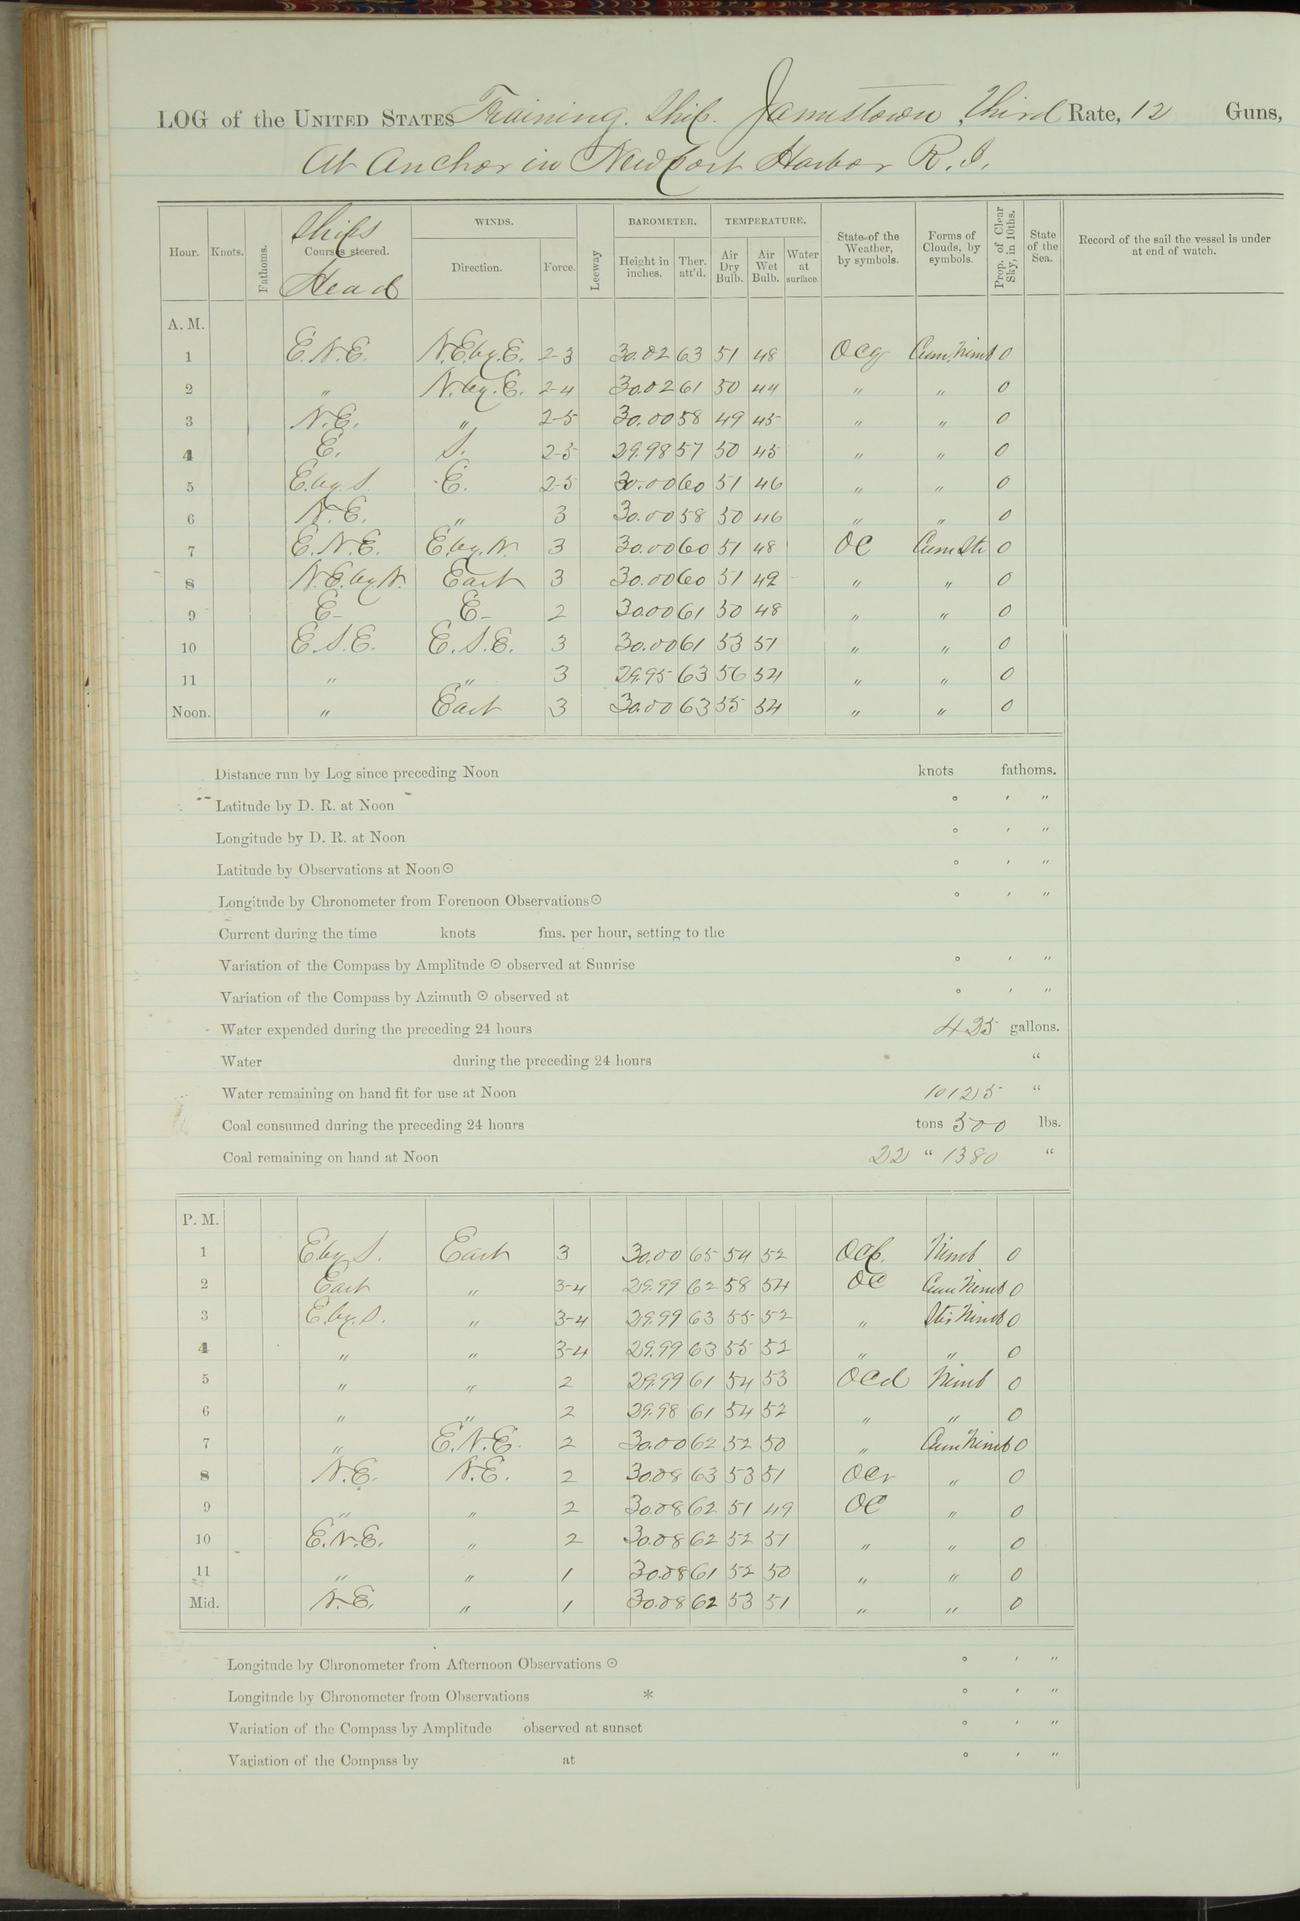 LOG of the UNITED STATES Training Ship Jamestown, Third Rate, 12 Guns,
At Anchor in Newport Harbor R.I.
Hour. Knots. Fathoms. Ships Courses steered. Head WINDS. Direction. Force. Leeway BAROMETER. Height in inches. Ther. att'd. TEMPERATURE. Air Dry Bulb. Air Wet Bulb. Water at surface. State of the Weather, by symbols. Forms of Clouds, by symbols. Prop. of Clear Sky, in 10ths. State of the Sea. Record of the sail the vessel is under at end of watch.
A. M.
1 E.N.E. N.E.by.E. 2-3 30.02 63 51 48 Ocg Cum. Nimb 0
2 " N.by.E. 2-4 30.02 61 50 44 " " 0
3 N.E. " 2-5 30.00 58 49 45 " " 0
4 E. S. 2-5 29.98 57 50 45 " " 0
5 E.by.S. E. 2-5 30.00 60 51 46 " " 0
6 N.E. " 3 30.00 58 50 46 " " 0
7 E.N.E. E.by.N. 3 30.00 60 51 48 OC Cum Str 0
8 N.E.by.N. East 3 30.00 60 51 49 " " 0
9 E- E- 2 30.00 61 50 48 " " 0
10 E.S.E. E.S.E. 3 30.00 61 53 51 " " 0
11 " " 3 29.95 63 56 54 " " 0
Noon. " East 3 30.00 63 55 54 " " 0
Distance run by Log since preceding Noon knots fathoms.
Latitude by D. R. at Noon ° ' "
Longitude by D. R. at Noon ° ' "
Latitude by Observations at Noon ⊙ ° ' "
Longitude by Chronometer from Forenoon Observations ⊙ ° ' "
Current during the time knots fms. per hour, setting to the
Variation of the Compass by Amplitude ⊙ observed at Sunrise ° ' "
Variation of the Compass by Azimuth ⊙ observed at ° ' "
Water expended during the preceding 24 hours 435 gallons.
Water during the preceding 24 hours "
Water remaining on hand fit for use at Noon 10125 "
Coal consumed during the preceding 24 hours tons 500 lbs.
Coal remaining on hand at Noon 22 " 1380 "
P. M.
1 E.by.S. East 3 30.00 65 54 52 Nimb 0
2 East " 3-4 29.99 62 58 54 OC Cum Nimb 0
3 E.by.S. " 3-4 29.99 63 55 52 " Str Nimb 0
4 " " 3-4 29.99 63 55 52 " " 0
5 " " 2 29.99 61 54 53 OCd Nimb 0
6 " " 2 29.98 61 54 52 " " 0
7 " E.N.E. 2 30.00 62 52 50 " Cum Nimb 0
8 N.E. N.E. 2 30.08 63 53 51 OCr " 0
9 " " 2 30.08 62 51 49 OC " 0
10 E.N.E. " 2 30.08 62 52 51 " " 0
11 " " 1 30.08 61 52 50 " " 0
Mid. N.E. " 1 30.08 62 53 51 " " 0
Longitude by Chronometer from Afternoon Observations ⊙ ° ' "
Longitude by Chronometer from Observations * ° ' "
Variation of the Compass by Amplitude observed at sunset ° ' "
Variation of the Compass by at ° ' "